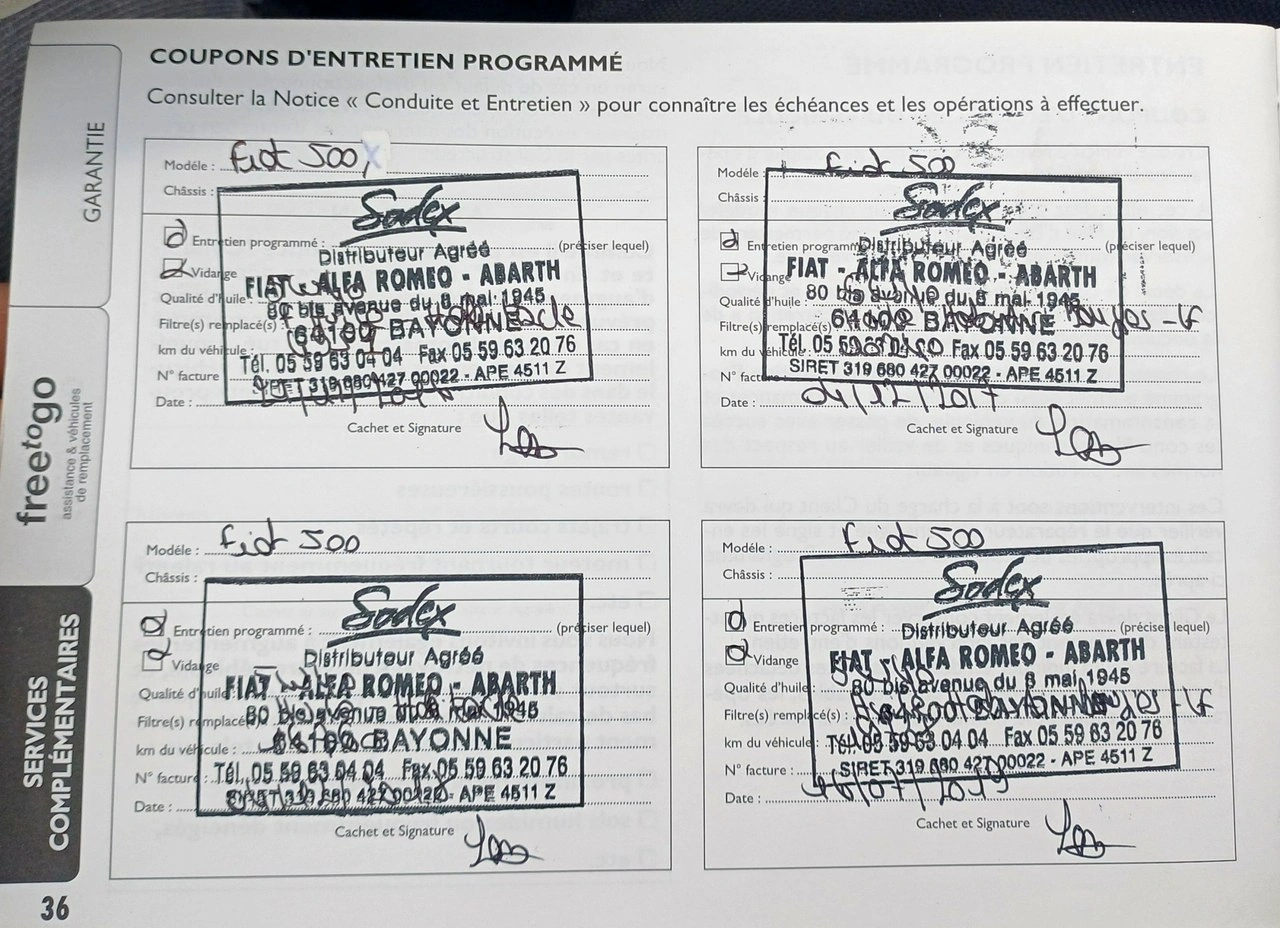 COUPONS D'ENTRETIEN PROGRAMMÉ
Consulter la Notice « Conduite et Entretien » pour connaître les échéances et les opérations à effectuer.
GARANTIE
freetogo
assistance & véhicules
de remplacement
SERVICES
COMPLÉMENTAIRES
36
Modéle : Fiat 500X
Châssis :
Sodex
Entretien programmé : (préciser lequel)
Distributeur Agréé
Vidange
FIAT - ALFA ROMEO - ABARTH
Qualité d'huile :
80 bis avenue du 8 mai 1945
Filtre(s) remplacé(s) :
64100 BAYONNE
km du véhicule :
Tél. 05 59 63 04 04 Fax 05 59 63 20 76
N° facture
SIRET 319 680 427 00022 - APE 4511 Z
Date :
Cachet et Signature
Modéle : Fiat 500
Châssis :
Sodex
Entretien programmé (préciser lequel)
Distributeur Agréé
Vidange
FIAT - ALFA ROMEO - ABARTH
Qualité d'huile :
80 bis avenue du 8 mai 1945
Filtre(s) remplacé(s)
BAYONNE
km du véhicule :
Tél. 05 59 Fax 05 59 63 20 76
N° facture
SIRET 319 680 427 00022 - APE 4511 Z
Date : 04/12/2017
Cachet et Signature
Modéle : Fiat 500
Châssis :
Sodex
Entretien programmé : (préciser lequel)
Distributeur Agréé
Vidange
FIAT - ALFA ROMEO - ABARTH
Qualité d'huile
80 bis avenue 1945
Filtre(s) remplacé
km du véhicule :
BAYONNE
N° facture :
Tél. 05 59 63 04 04 Fax 05 59 63 20 76
SIRET 319 680 427 00022 - APE 4511 Z
Date :
Cachet et Signature
Modéle : Fiat 500
Châssis :
Sodex
Entretien programmé : (préciser lequel)
Distributeur Agréé
Vidange
FIAT - ALFA ROMEO - ABARTH
Qualité d'huile :
80 bis avenue du 8 mai 1945
Filtre(s) remplacé(s) :
BAYONNE
km du véhicule :
Tél. 05 59 63 04 04 Fax 05 59 63 20 76
N° facture :
SIRET 319 680 427 00022 - APE 4511 Z
Date : /07/2019
Cachet et Signature